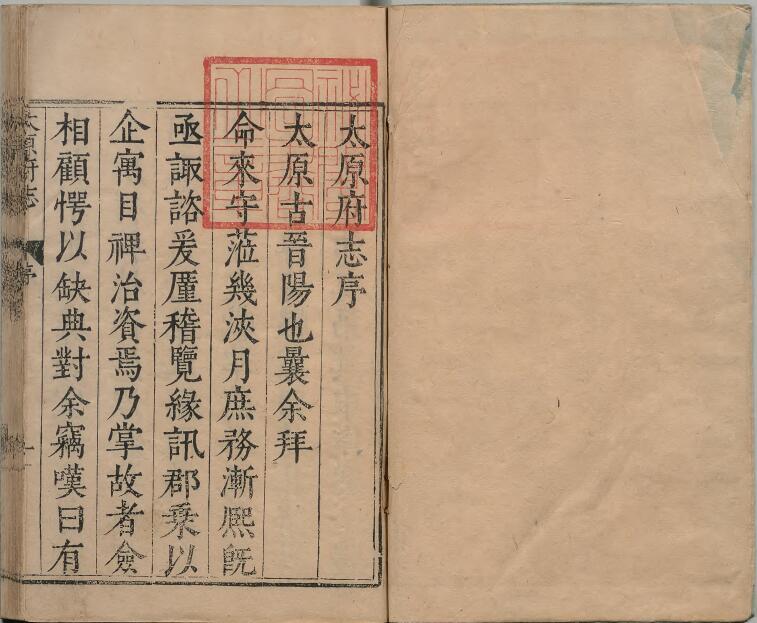 太原府志序
太原古晉陽也曩余拜
命來守蒞幾浹月庶務漸熙旣
亟諏諮爰厪稽覽緣訊郡乗以
企寓目禆治資焉乃掌故者僉
相顧愕以缺典對余竊嘆曰有
太原府志 序 一